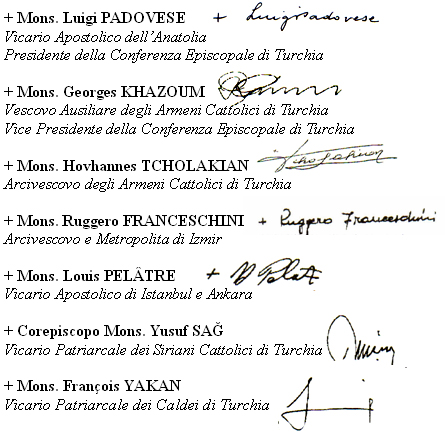 + Mons. Luigi PADOVESE + Luigi Padovese
Vicario Apostolico dell'Anatolia
Presidente della Conferenza Episcopale di Turchia
+ Mons. Georges KHAZOUM
Vescovo Ausiliare degli Armeni Cattolici di Turchia
Vice Presidente della Conferenza Episcopale di Turchia
+ Mons. Hovhannes TCHOLAKIAN
Arcivescovo degli Armeni Cattolici di Turchia
+ Mons. Ruggero FRANCESCHINI + Ruggero Franceschini
Arcivescovo e Metropolita di Izmir
+ Mons. Louis PELÂTRE +
Vicario Apostolico di Istanbul e Ankara
+ Corepiscopo Mons. Yusuf SAĞ
Vicario Patriarcale dei Siriani Cattolici di Turchia
+ Mons. François YAKAN
Vicario Patriarcale dei Caldei di Turchia